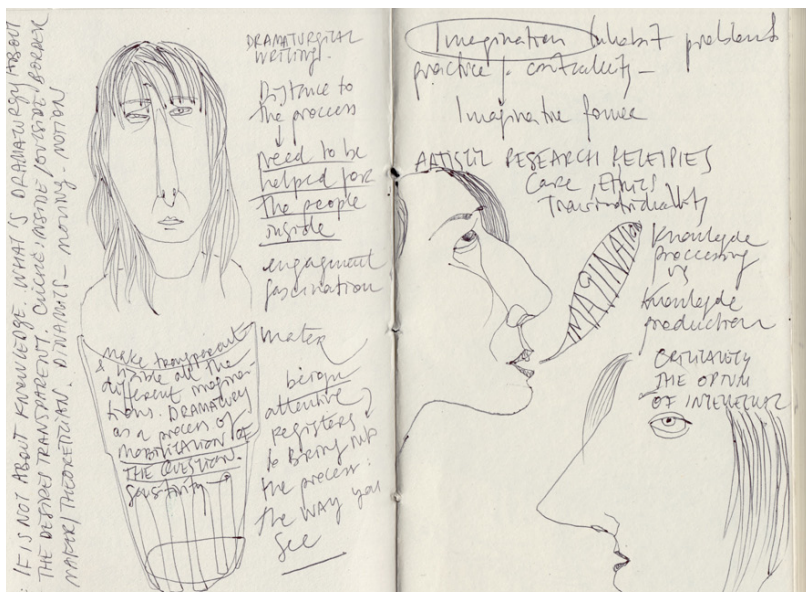 : IF IS NOT ABOUT KNOWLEDGE. WHAT'S DRAMATURGY ABOUT
THE DESIRES TRANSPARENT. CLICHÉ: INSIDE/OUTSIDE/BORDER
MAKER/THEORETICIAN. DINAMICS - MOVING - MOTION
DRAMATURGICAL
WRITING.
Distance to
the proccess
need to be
helped for
the people
inside
engagment
fascination
make transparent
& visible all the
different imagina-
tions. DRAMATURGY
as a process of
MOBILITATION OF
THE QUESTION.
Sensitivity
being
attentive
registers
to BRING INTO
the process:
the WAY you
See
Imagination inhabit problems
practice
Imaginative
ARTISTIC RESEARCH
Care, Ethics
Transindividuality
IMAGINATI
Knowledge
proccessing
vs
Knowledge
production
THE
OF